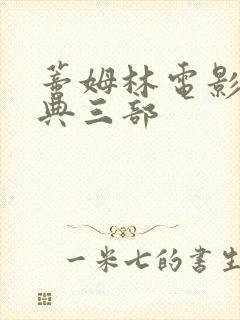 蕾姆林電影
典三部
一米七的書生